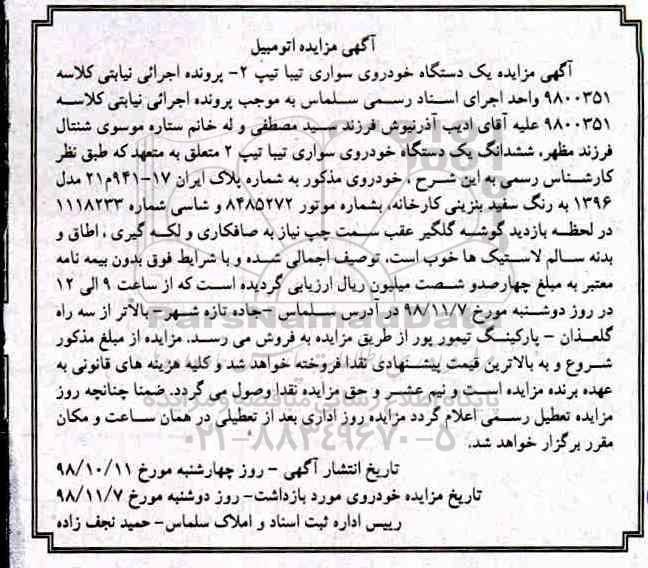 آگهی مزایده اتومبیل
آگهی مزایده یک دستگاه خودروی سواری تیبا تیپ ۲- پرونده اجرائی نیابتی کلاسه
۹۸۰۰۳۵۱ واحد اجرای اسناد رسمی سلماس به موجب پرونده اجرائی نیابتی کلاسه
۹۸۰۰۳۵۱ علیه آقای ادیب آذرنیوش فرزند سید مصطفی و له خانم ستاره موسوی شنتال
فرزند مظهر، ششدانگ یک دستگاه خودروی سواری تیبا تیپ ۲ متعلق به متعهد که طبق نظر
کارشناس رسمی به این شرح ، خودروی مذکور به شماره پلاک ایران ۱۷-۹۴۱م۲۱ مدل
۱۳۹۶ به رنگ سفید بنزینی کارخانه، بشماره موتور ۸۴۸۵۲۷۲ و شاسی شماره ۱۱۱۸۲۳۳
در لحظه بازدید گوشه گلگیر عقب سمت چپ نیاز به صافکاری و لکه گیری ، اطاق و
بدنه سالم لاستیک ها خوب است، توصیف اجمالی شده و با شرایط فوق بدون بیمه نامه
معتبر به مبلغ چهارصدو شصت میلیون ریال ارزیابی گردیده است که از ساعت ۹ الی ۱۲
در روز دوشنبه مورخ ۹۸/۱۱/۷ در آدرس سلماس -جاده تازه شهر- بالاتر از سه راه
گلعذان - پارکینگ تیمور پور از طریق مزایده به فروش می رسد. مزایده از مبلغ مذکور
شروع و به بالاترین قیمت پیشنهادی نقدا فروخته خواهد شد و کلیه هزینه های قانونی به
عهده برنده مزایده است و نیم عشر و حق مزایده نقدا وصول می گردد. ضمنا چنانچه روز
مزایده تعطیل رسمی اعلام گردد مزایده روز اداری بعد از تعطیلی در همان ساعت و مکان
مقرر برگزار خواهد شد.
تاریخ انتشار آگهی - روز چهارشنبه مورخ ۹۸/۱۰/۱۱
تاریخ مزایده خودروی مورد بازداشت- روز دوشنبه مورخ ۹۸/۱۱/۷
رییس اداره ثبت اسناد و املاک سلماس- حمید نجف زاده
ParsNamadData
۰۲۱-۸۸۳۴۹۶۷۰-۵